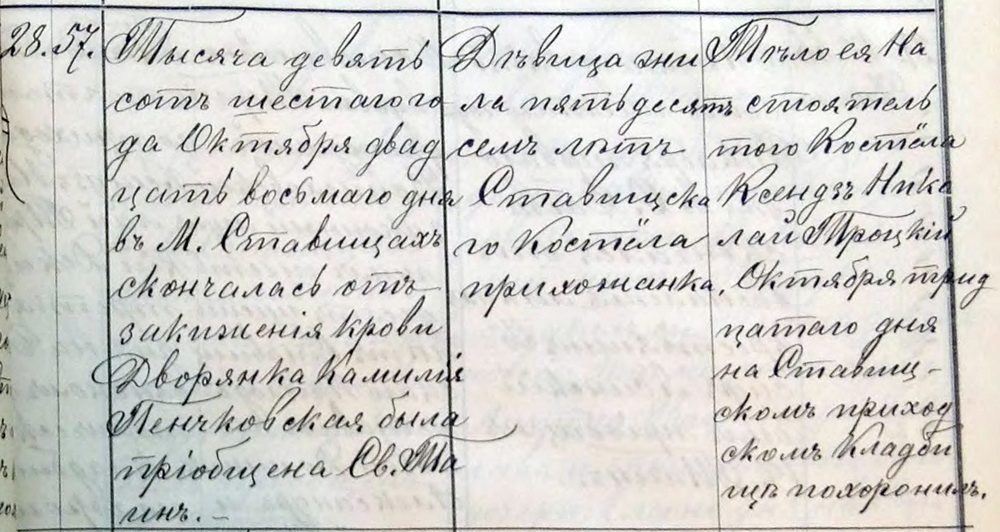 28. 57.
Тысяча девять
сотъ шестагого
да Октября двад
цать восьмаго дня
въ М. Ставищахъ
скончалась отъ
закипенія крови
Дворянка Камилія
Пенчковская была
пріобщена Св. Та
инъ. –
Дѣвица жи
ла пятьдесятъ
семъ лѣтъ
Ставищска
го Костёла
прихожанка.
Тѣло ея На
стоятель
того Костёла
Ксендзъ Нико
лай Троцкій
Октября трид
цатаго дня
на Ставищ-
скомъ приход
скомъ Кладби
щѣ похоронилъ.